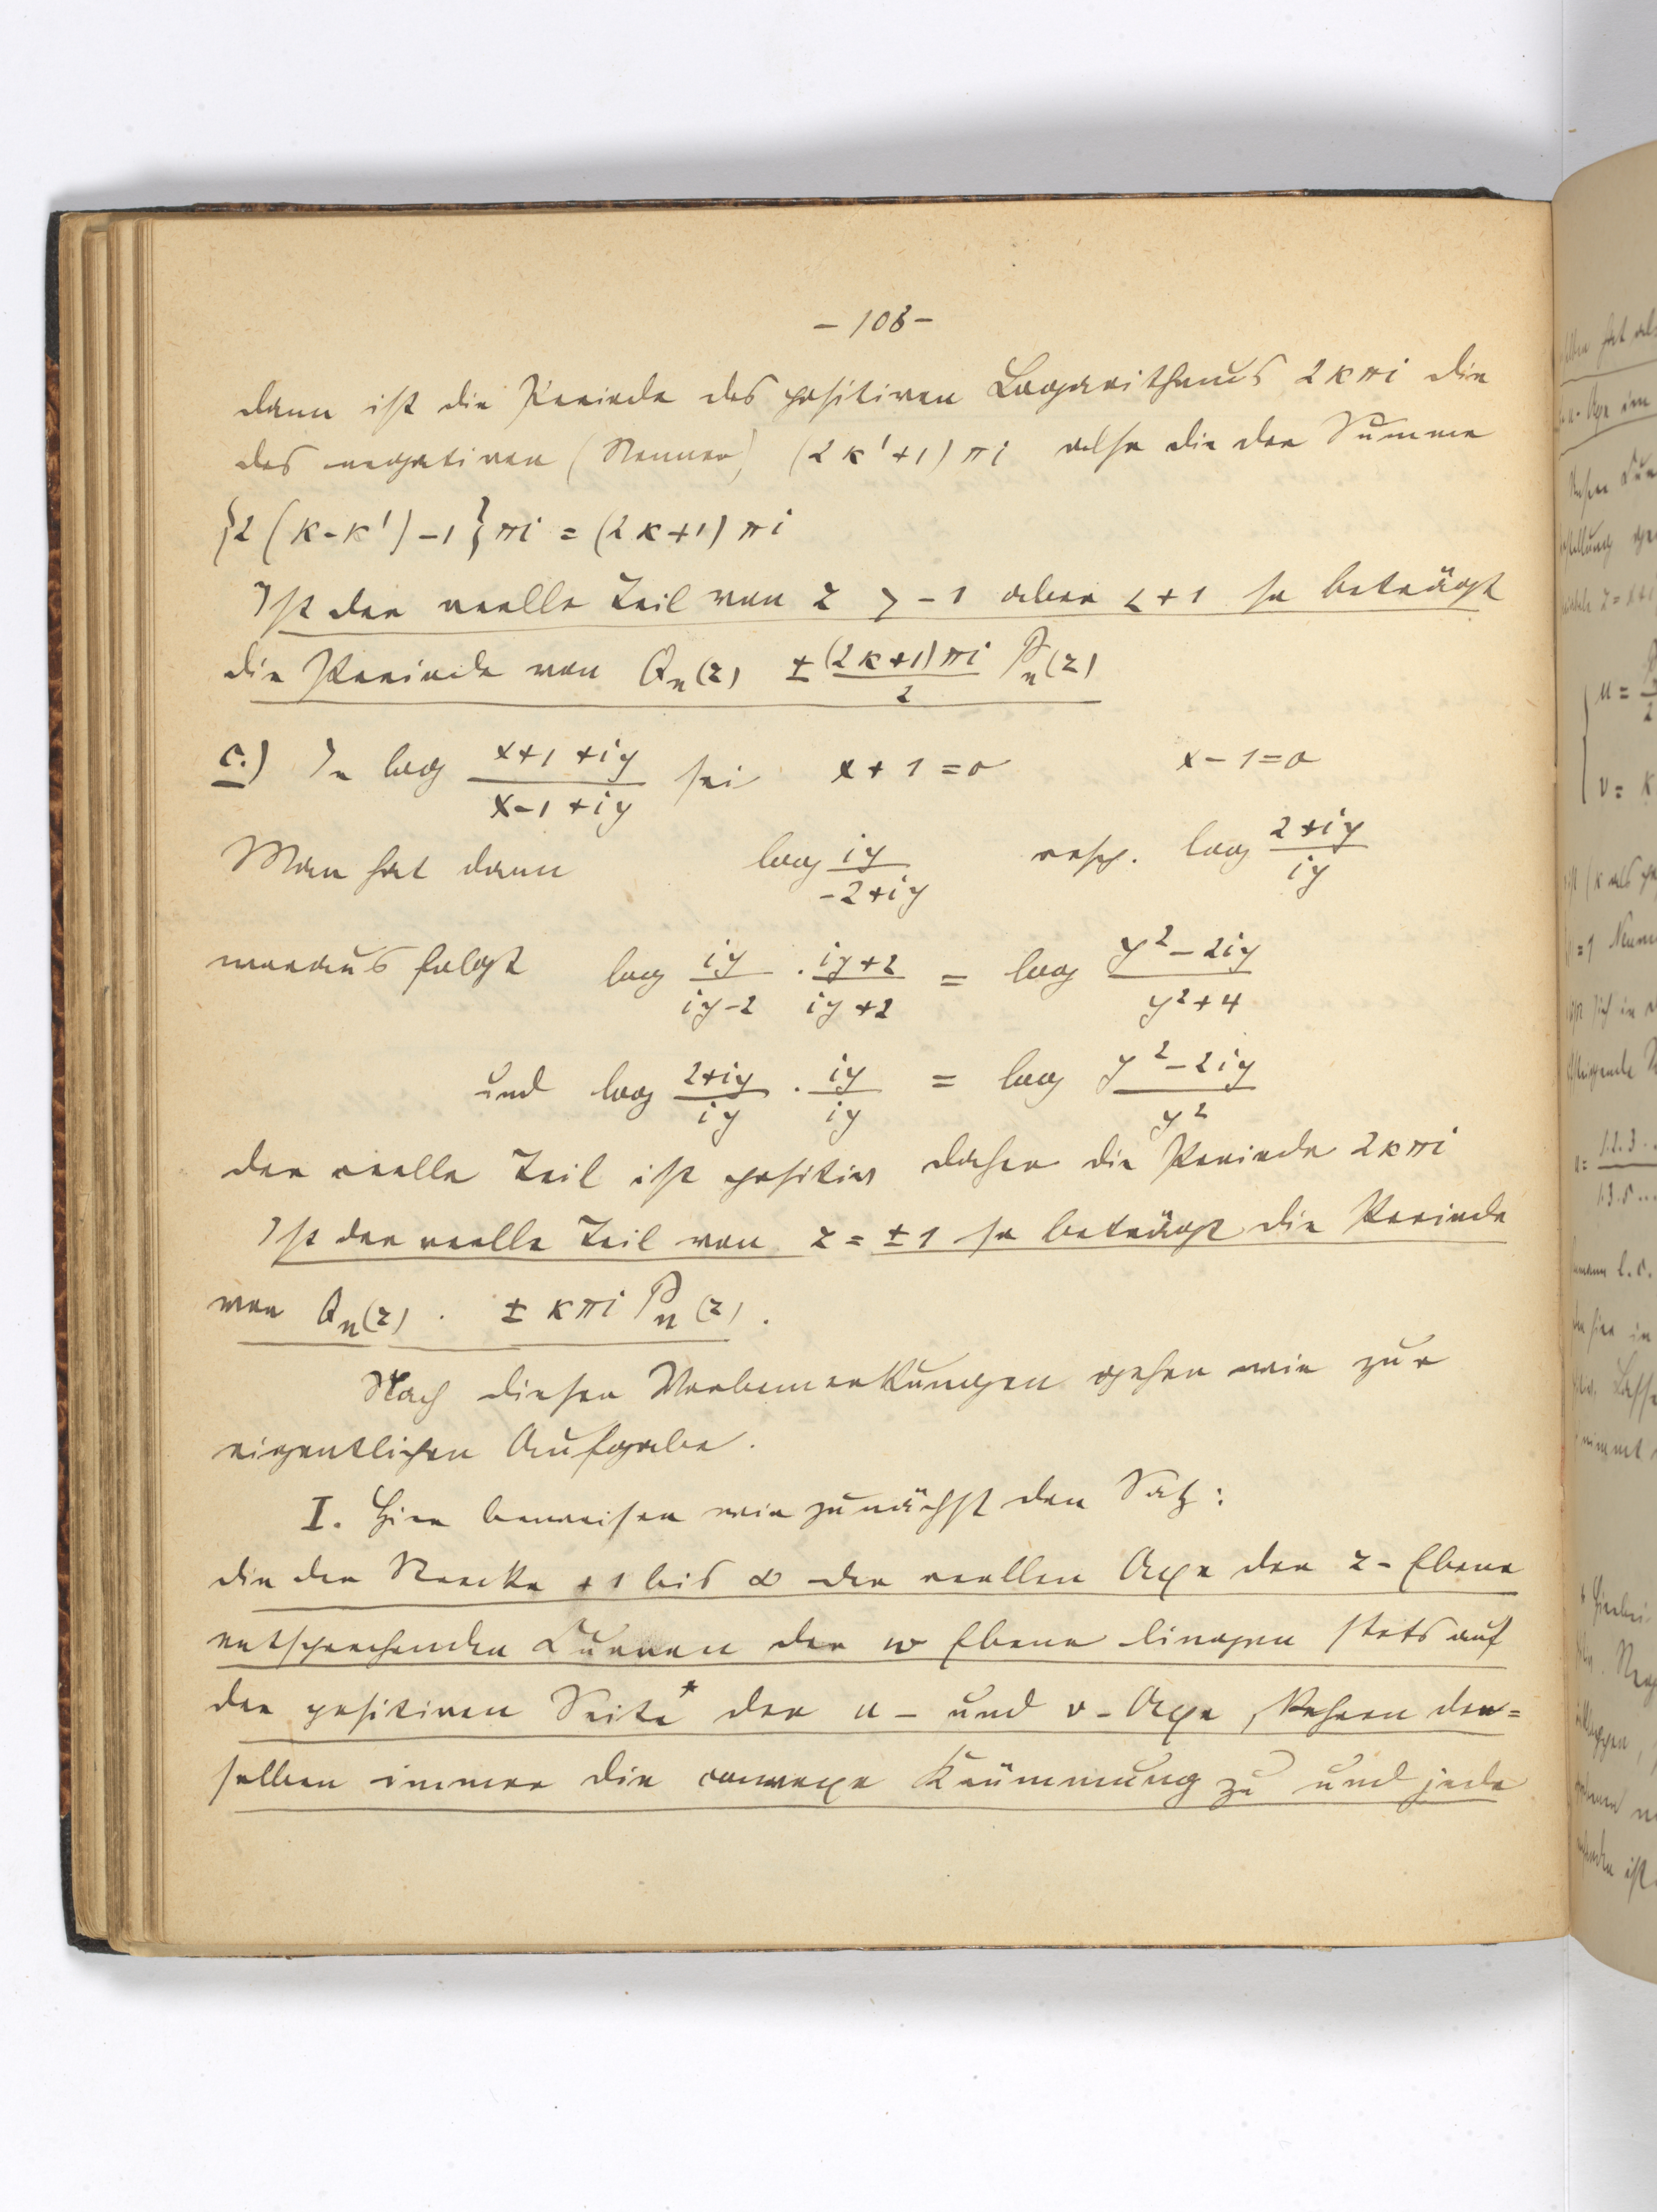 – 108 –
dann ist die Periode des positiven Logarithmus 2kπi die
des negativen (Nenner) (2k'+1)πi also die der Summe
{2(k-k')-1}πi = (2k+1)πi
Ist der reelle Teil von z > -1 aber < +1 so beträgt
die Periode von Qn(z) ± (2k+1)πi/2 Pn(z)
c.) In log (x+1+iy)/(x-1+iy) sei x+1=0 x-1=0
Man hat dann log iy/(-2+iy) resp. log (2+iy)/iy
woraus folgt log iy/(iy-2) · (iy+2)/(iy+2) = log (y²-2iy)/(y²+4)
und log (2+iy)/iy · iy/iy = log (y²-2iy)/y²
der reelle Teil ist positiv daher die Periode 2kπi
Ist der reelle Teil von z = ±1 so beträgt die Periode
von Qn(z) . ± kπi Pn(z).
Nach diesen Vorbemerkungen gehen wir zur
eigentlichen Aufgabe.
I. Hier beweisen wir zunächst den Satz:
die der Strecke +1 bis ∞ der reellen Axe der z-Ebene
entsprechenden Curven der w Ebene liegen stets auf
der positiven Seite* der u- und v-Axe, kehren der=
selben immer die convexe Krümmung zu und jede